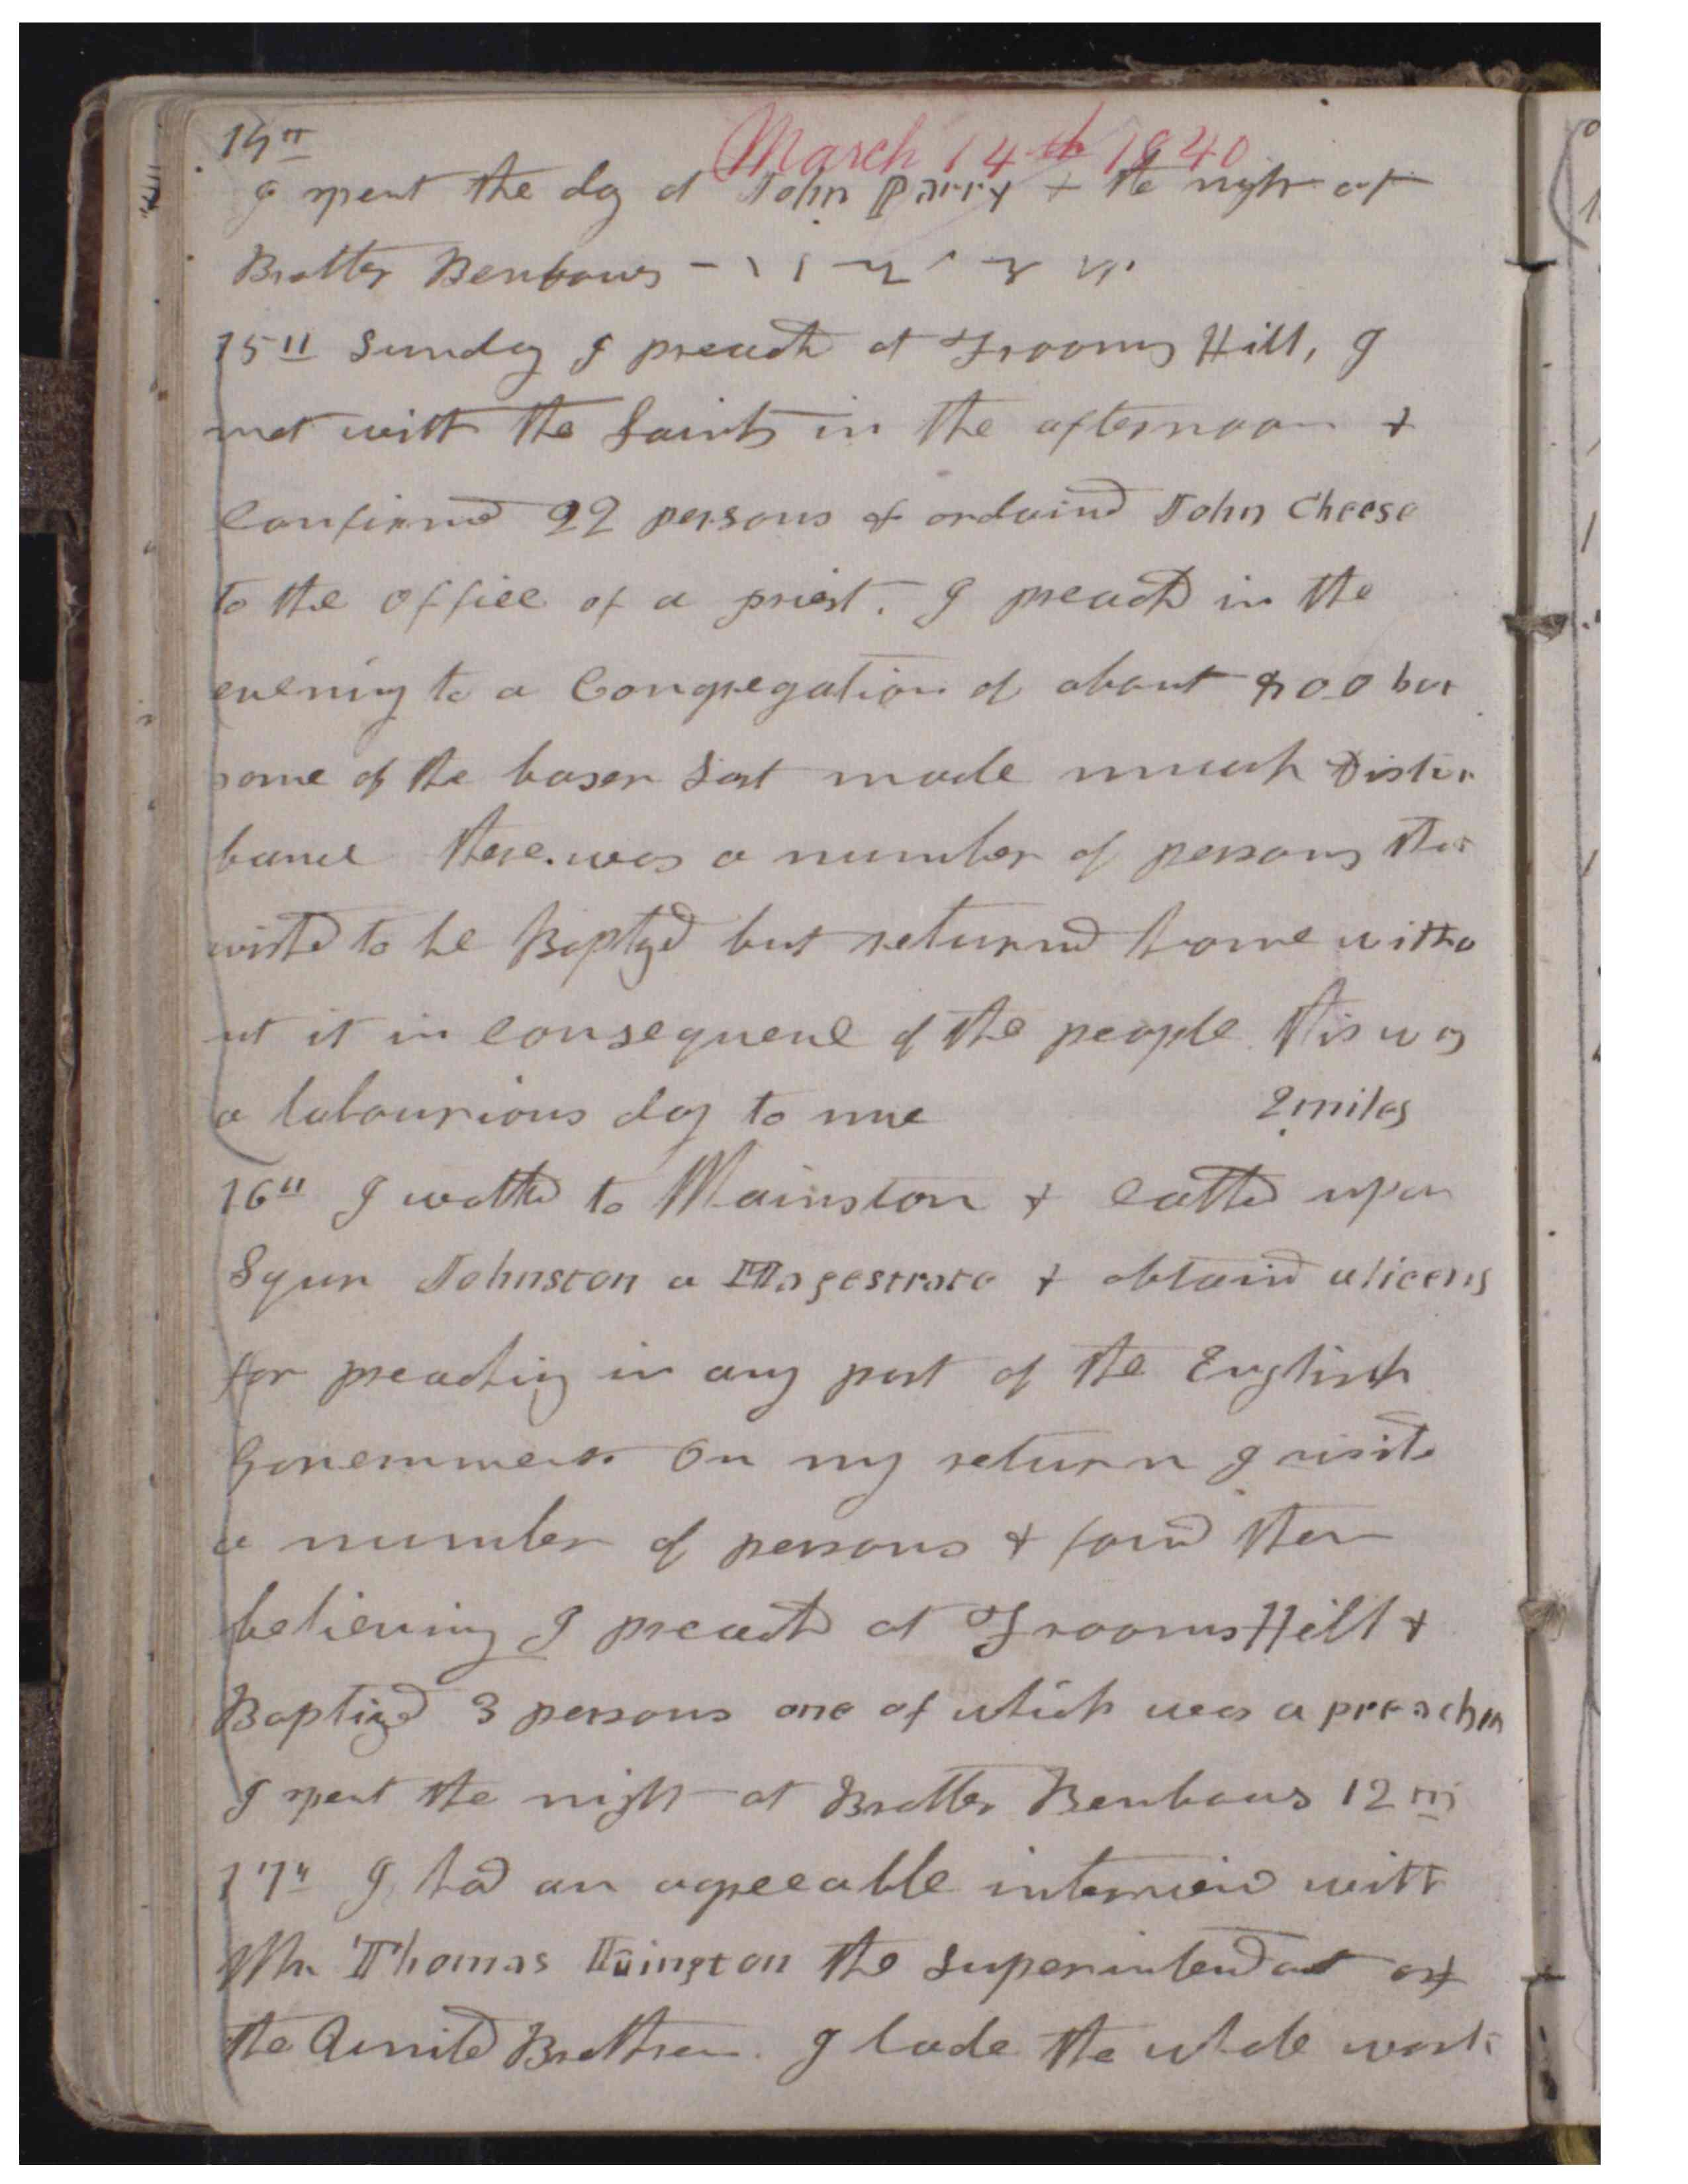 March 14th 1840
14th
I spent the day at John Parry & the night at
Brother Benbows -
15th Sunday I preachd at Frooms Hill, I
met with the Saints in the afternoon &
Confirmed 22 persons & ordaind John Cheese
to the office of a priest. I preachd in the
evening to a Congregation of about 800 but
some of the baser Sort made much distur
bance there was a number of persons that
wishd to be Baptized but returned home witho
ut it in consequence of the people this was
a labourious day to me 2 miles
16th I walked to Mainston & called upon
Squir Johnston a Magestrate & obtaind a licens
for preaching in any part of the English
Government On my return I visited
a number of persons & found them
believing I preachd at Frooms Hill &
Baptized 3 persons one of which was a preacher
I spent the night at Brother Benbows 12 m
17th I had an agreeable interview with
Mr Thomas Kington the Superintendant of
the United Brethren. I lade the whole work